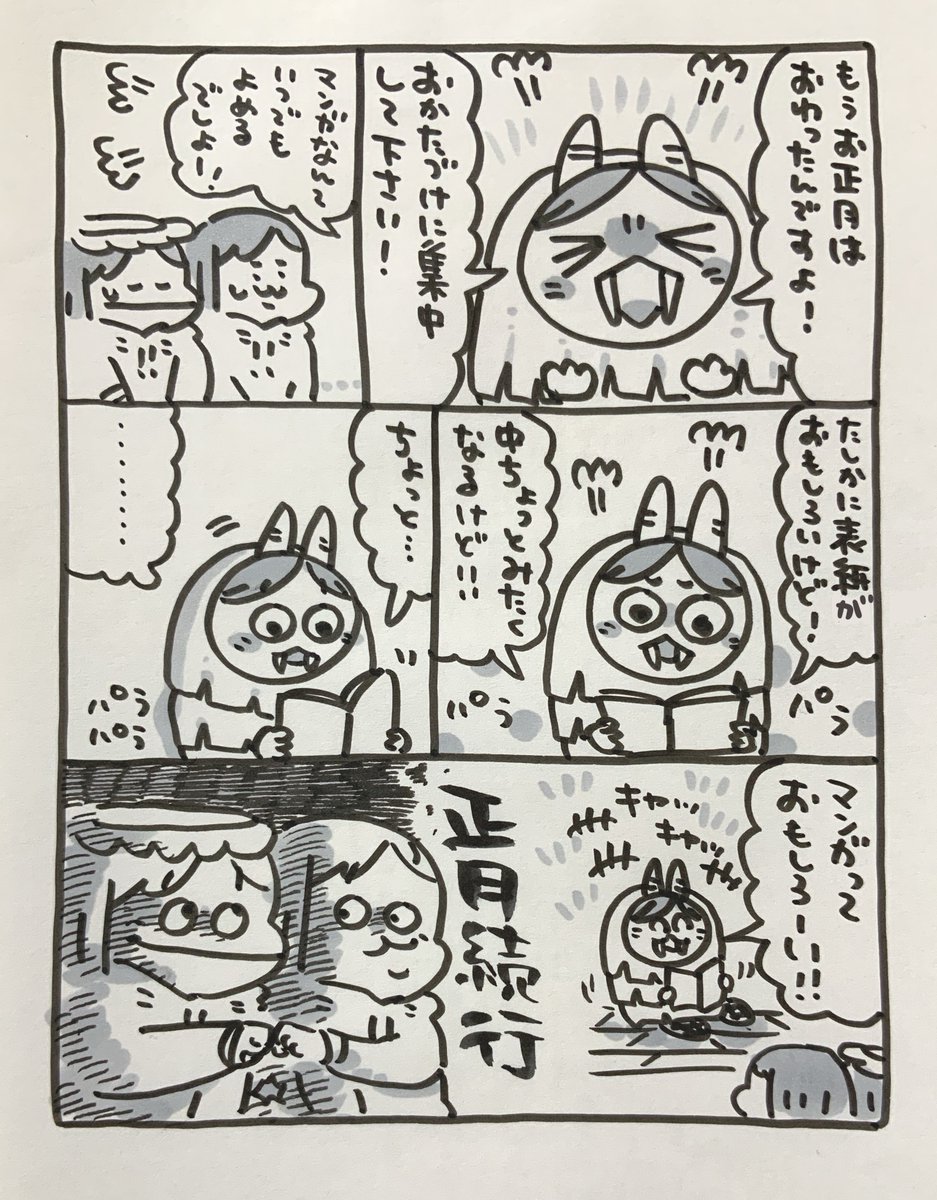 もうお正月は
おわったんですよー！
おかたづけに集中
して下さい！
マンガなんて
いつでも
よめる
でしょー！
たしかに表紙が
おもしろいけどー！
中ちょっとみたく
なるけど！！
パラ
パラ
ちょっと…
………
パラ
パラ
マンガって
おもしろーい!!
キャッ
キャッ
正月続行